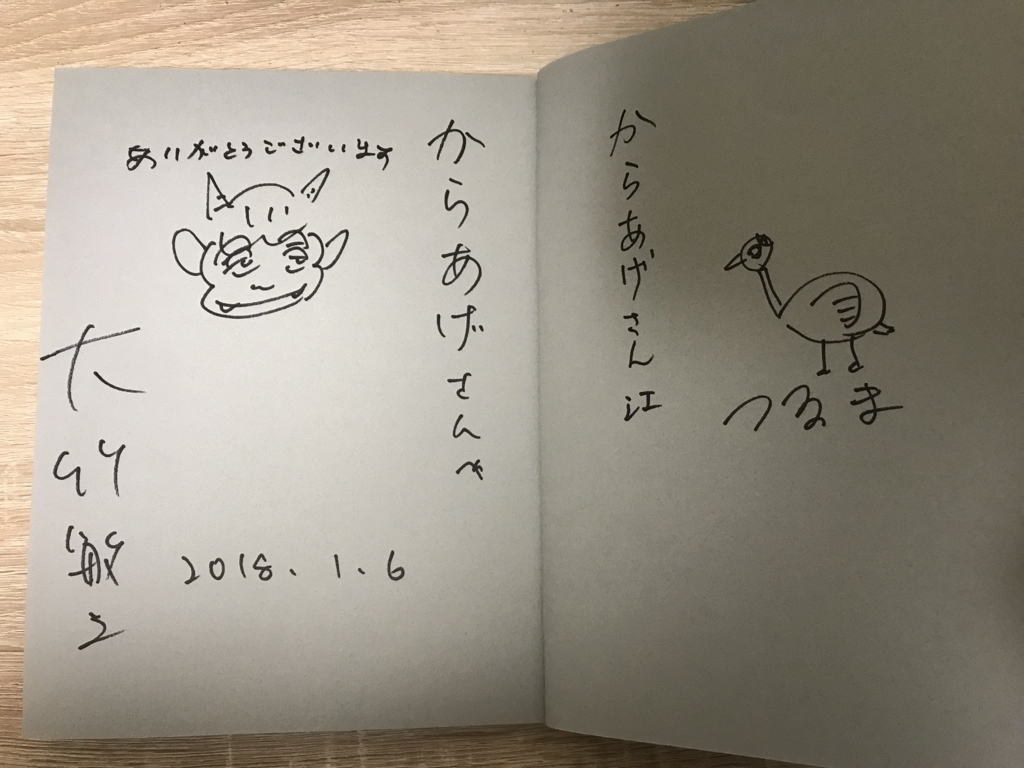 からあげさん江
つるま
からあげさんへ
ありがとうございます
大竹敏之
2018.1.6